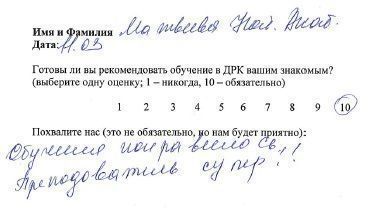 Имя и Фамилия Матвеева Нат. Анат.
Дата: 11.03
Готовы ли вы рекомендовать обучение в ДРК вашим знакомым?
(выберите одну оценку; 1 – никогда, 10 – обязательно)
1 2 3 4 5 6 7 8 9 10
Похвалите нас (это не обязательно, но нам будет приятно):
Обучения понравилось,
Преподователь супер!!